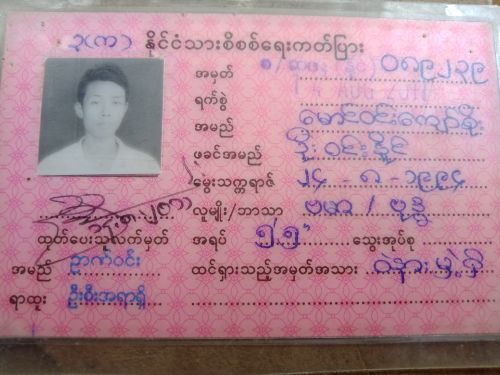 ၃(က) နိုင်ငံသားစိစစ်ရေးကတ်ပြား
အမှတ် ၀၈၉၂၃၉
ရက်စွဲ 4 AUG
အမည် မောင်ဝင်းကျော်စိုး
ဖခင်အမည် ဦးဝင်းနိုင်
မွေးသက္ကရာဇ် ၂၄-၈-၁၉၉၄
လူမျိုး/ဘာသာ ဗမာ / ဗုဒ္ဓ
အရပ် ၅' ၅" သွေးအုပ်စု
ထင်ရှားသည့်အမှတ်အသား ဝဲနားမှဲ့ရှိ
ထုတ်ပေးသူလက်မှတ်
အမည် ဉာဏ်ဝင်း
ရာထူး ဦးစီးအရာရှိ